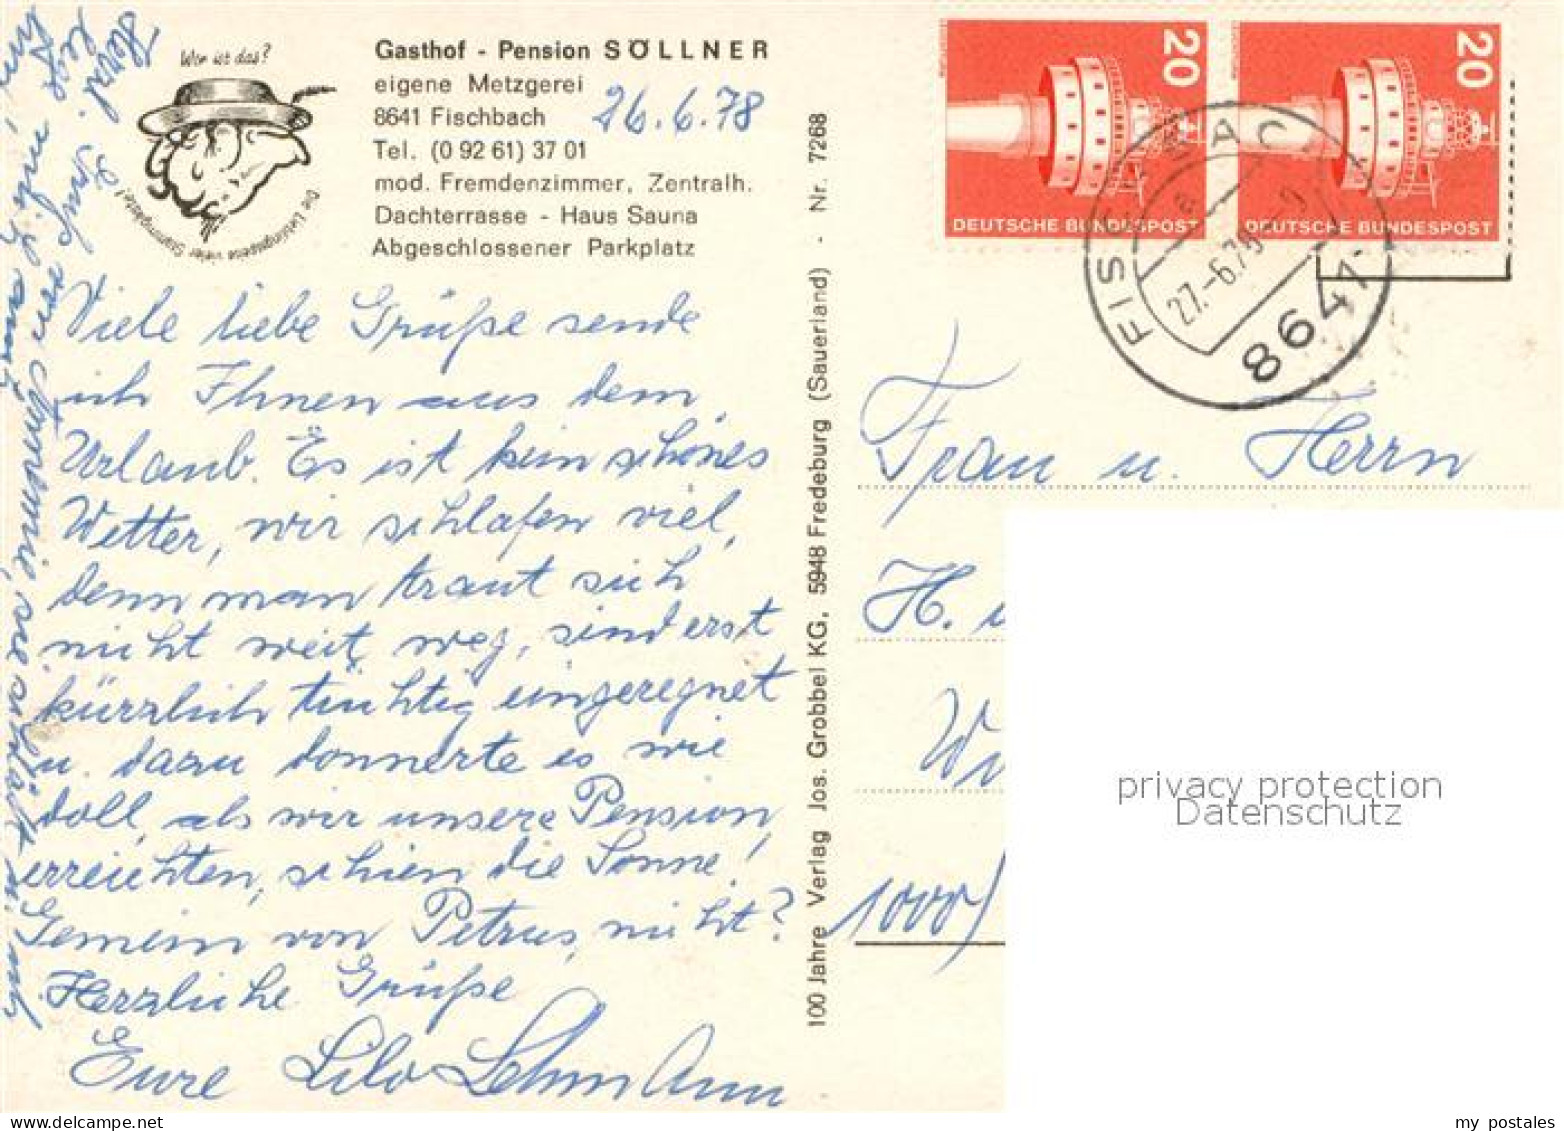 Wer ist das?
Die Lieblingsspeise vieler Stammgäste!
Gasthof - Pension SÖLLNER
eigene Metzgerei
8641 Fischbach
26.6.78
Tel. (0 92 61) 37 01
mod. Fremdenzimmer, Zentralh.
Dachterrasse - Haus Sauna
Abgeschlossener Parkplatz
Viele liebe Grüße sende
ich Ihnen aus dem
Urlaub. Es ist kein schönes
Wetter, wir schlafen viel,
denn man traut sich
nicht weit weg, sind erst
kürzlich tüchtig eingeregnet
u. dazu donnerte es wie
doll, als wir unsere Pension
erreichten, schien die Sonne!
Gemein von Petrus, nicht?
Herzliche Grüße
Eure Lilo Lehmann
Herzl.
100 Jahre Verlag Jos. Grobbel KG, 5948 Fredeburg (Sauerland) · Nr. 7268
20
DEUTSCHE BUNDESPOST
20
DEUTSCHE BUNDESPOST
27.-6.78
8641
Frau u. Herrn
H.
1000
privacy protection
Datenschutz
my_postales